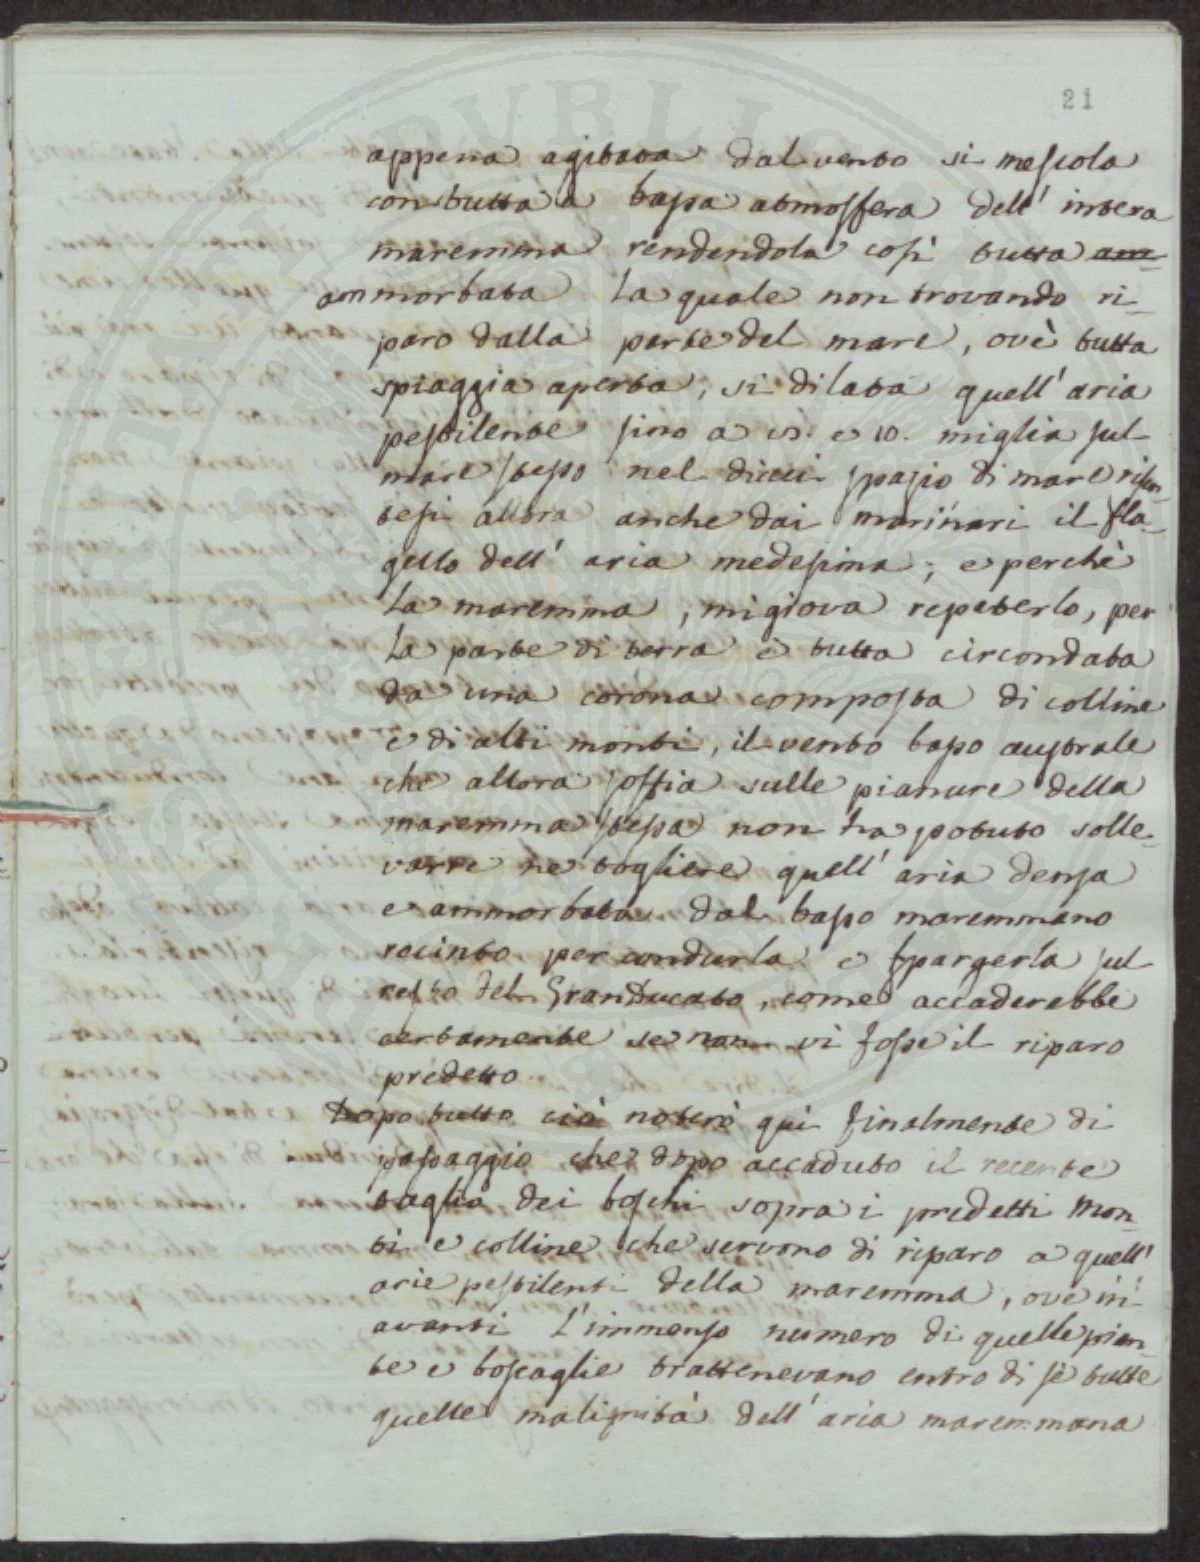 21
appena agitata dal vento si mescola
con tutta a bassa atmosfera dell' intera
maremma rendendola così tutta am-
am morbata la quale non trovando ri-
paro dalla parte del mare, ovè tutta
spiaggia aperta, si dilata quell' aria
pestilente sino a e 10. miglia sul
mare stesso nel spazio di mare risen-
tesi allora anche dai marinari il fla-
gello dell' aria medesima; e perchè
la maremma, mi giova repeterlo, per
la parte di terra è tutta circondata
da una corona composta di colline
e di alti monti, il vento basso australe
che allora soffia sulle pianure della
maremma stessa non ha potuto solle-
varre ne togliere quell' aria densa
e ammorbata dal basso maremmano
recinto per condurla e spargerla sul
resto del GranDucato, come accaderebbe
certamente se non vi fosse il riparo
predetto
Dopo tutto ciò noterò quì finalmente di
passaggio che dopo accaduto il recente
taglio dei boschi sopra i predetti Mon-
ti e colline che servono di riparo a quell'
arie pestilenti della maremma, ove in'
avanti l'immenso numero di quelle pian-
te e boscaglie trattenevano entro di sè tutte
quelle malignità dell' aria maremmana